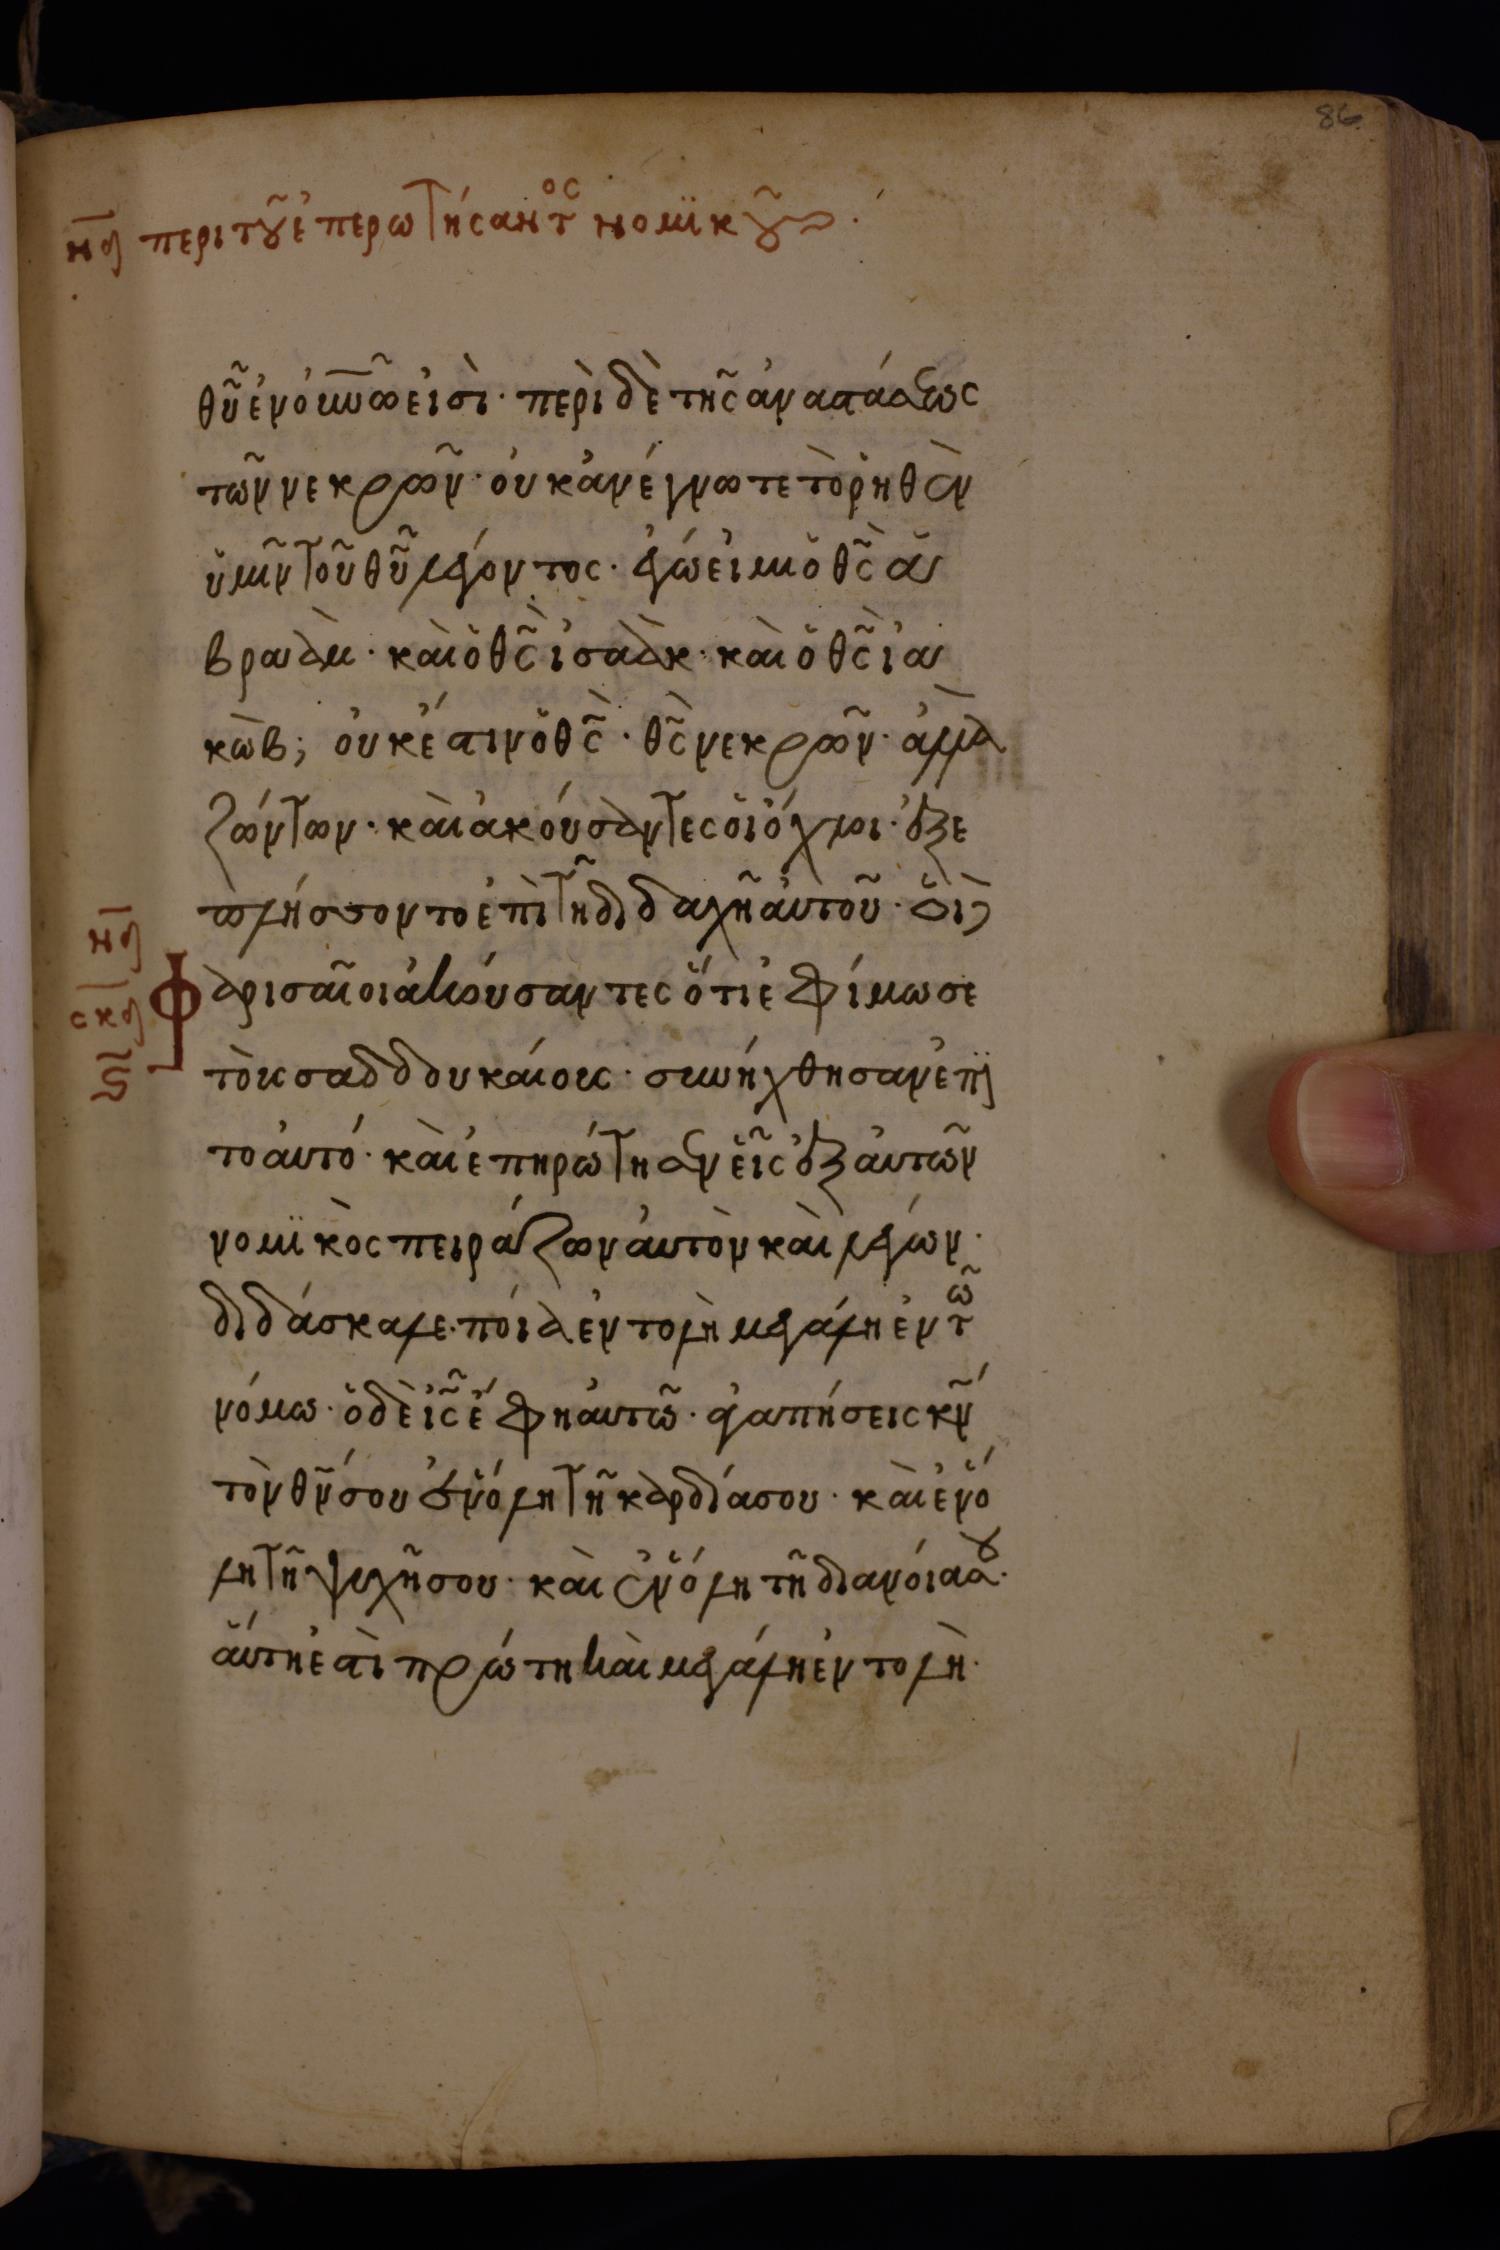 νδ περι τοῦ ἐπερωτήσαντος νομϊκοῦ
θῦ ἐν οὐνῶ εἰσὶ· περὶ δὲ τῆς ἀναστάσεως
τῶν νεκρῶν· οὐκ ἀνέγνωτε τὸ ῥηθὲν
ὑμῖν τοῦ θῦ λέγοντος· ἐγώ εἰμι ὁ θς ἀ
βραὰμ· καὶ ὁ θς ἰσαὰκ· καὶ ὁ θς ἰα
κὼβ; οὐκ ἔστιν ὁ θς· θς νεκρῶν· ἀλλὰ
ζώντων· καὶ ἀκούσαντες οἱ ὄχλοι· ἐξε
πλήσσοντο ἐπὶ τῆ διδαχῆ αὐτοῦ· οἱ
φαρισαῖοι ἀκούσαντες ὅτι ἐφίμωσε
τοὺς σαδδουκαίους· συνήχθησαν ἐπὶ
το αὐτό· καὶ ἐπηρώτησεν εἷς ἐξ αὐτῶν
νομϊκὸς πειράζων αὐτὸν καὶ λέγων·
διδάσκαλε· ποία ἐντολὴ μεγάλη ἐν τῶ
νόμω· ὁ δὲ ις ἔφη αὐτῶ· ἀγαπήσεις κν
τὸν θν σου ἐν ὅλη τῆ καρδία σου· καὶ ἐν ὅ
λη τῆ ψυχῆ σου· καὶ ἐν ὅλη τῆ διανοία σου·
αὕτη ἐστὶ πρώτη καὶ μεγάλη ἐντολὴ·
νδ
σκδ
ϛ
86